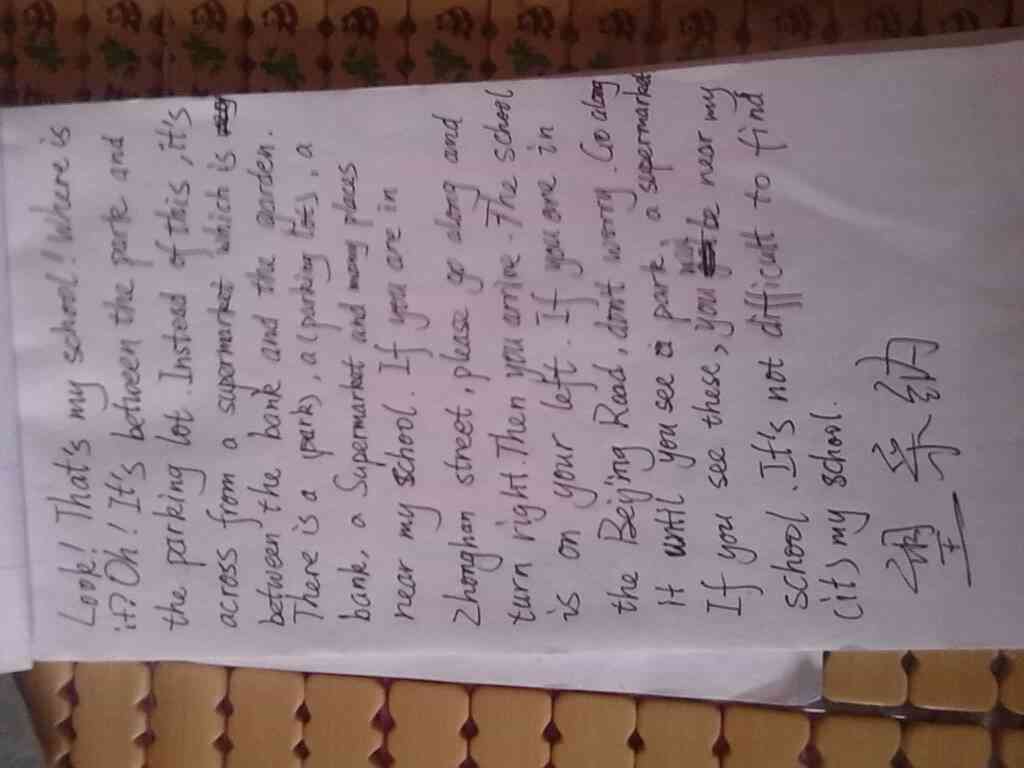 Look! That's my school! Where is
it? Oh! It's between the park and
the parking lot. Instead of this, it's
across from a supermarket which is
between the bank and the garden.
There is a (park), a (parking lots), a
bank, a Supermarket and many places
near my school. If you are in
Zhonghan street, please go along and
turn right. Then you arrive. The school
is on your left. If you are in
the Beijing Read, don't worry. Go along
it until you see a park, a supermarket
If you see these, you will be near my
school. It's not difficult to find
(it) my school.